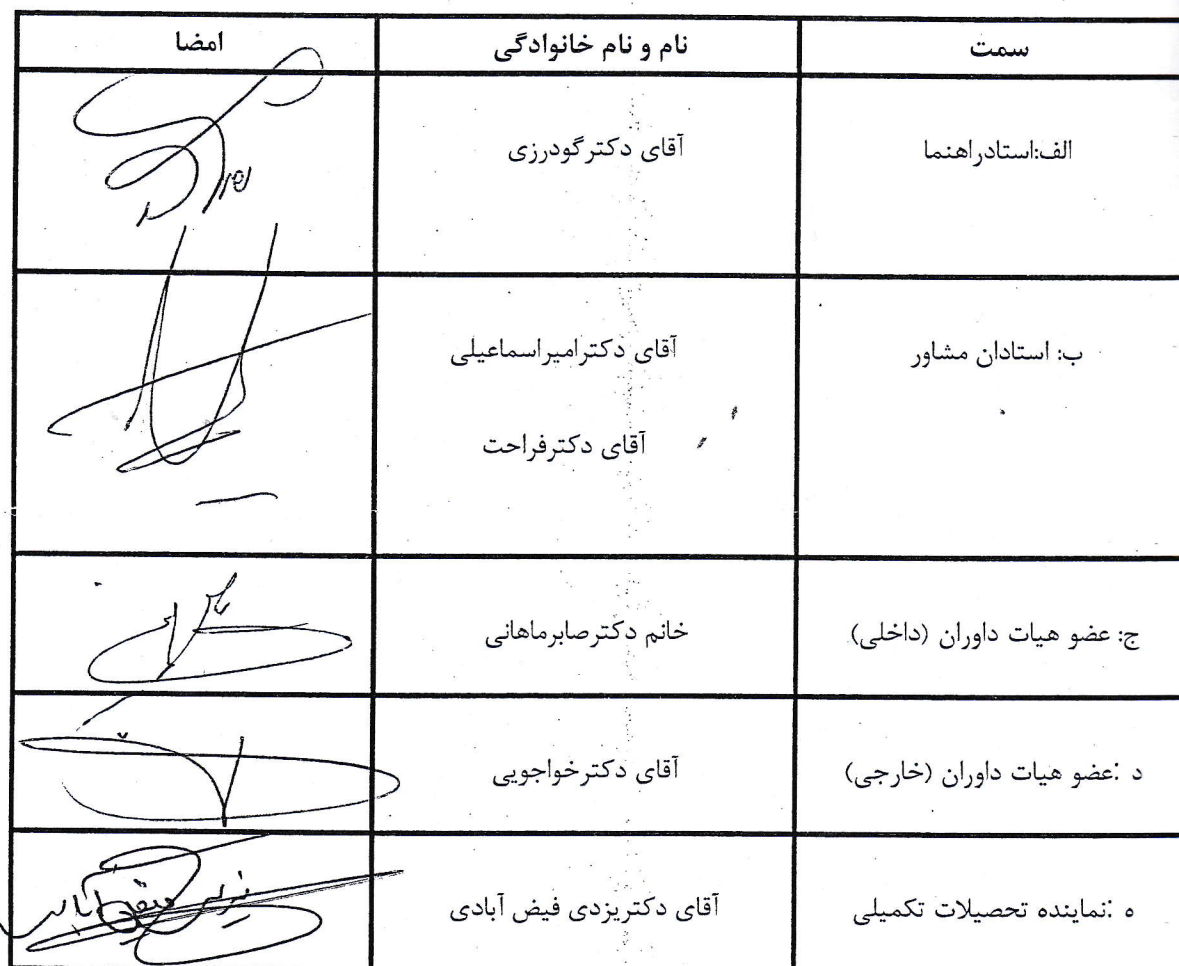 سمت نام و نام خانوادگی امضا
الف:استادراهنما آقای دکترگودرزی
ب: استادان مشاور آقای دکترامیراسماعیلی
آقای دکترفراحت
ج: عضو هیات داوران (داخلی) خانم دکترصابرماهانی
د :عضو هیات داوران (خارجی) آقای دکترخواجویی
ه :نماینده تحصیلات تکمیلی آقای دکتریزدی فیض آبادی